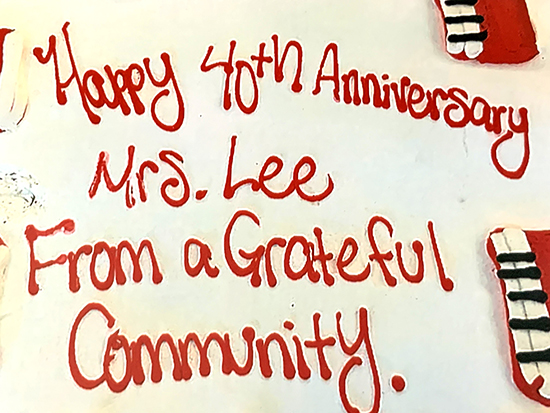 Happy 40th Anniversary
Mrs. Lee
From a Grateful
Community.